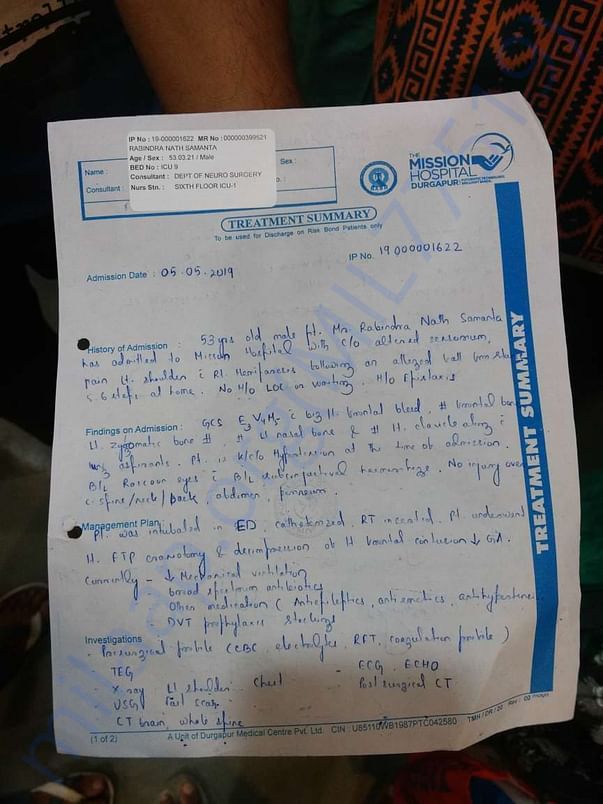 IP No : 19-000001622 MR No : 000000399521
RABINDRA NATH SAMANTA
Age / Sex : 53.03.21 / Male
BED No : ICU 9
Consultant : DEPT OF NEURO SURGERY
Nurs Stn. : SIXTH FLOOR ICU-1
Name :
Sex :
Consultant :
THE
MISSION
HOSPITAL
DURGAPUR
TREATMENT SUMMARY
To be used for Discharge on Risk Bond Patients only
IP No. 19 000001622
Admission Date : 05.05.2019
History of Admission : 53 yrs old male pt. Mr. Rabindra Nath Samanta
has admitted to Mission Hospital with C/o altered sensorium,
pain Lt. shoulder c Rt. Hemiparesis following an alleged fall from
5-6 steps at home. No H/o LOC or vomiting. H/o Epistaxis
Findings on Admission : GCS E3 V4 M5 c frontal bleed, # frontal bone
zygomatic bone #, # nasal bone & # lt. clavicle along c
aspirants. Pt. is K/C/O Hypertension at the time of admission.
B/L Raccoon eyes c B/L subconjunctival haemorrhage. No injury over
c-spine/neck/back abdomen, perineum.
Management Plan : Pt. was intubated in ED. catheterized. RT inserted. Pt. underwent
FTP craniotomy & decompression of lt frontal contusion ↓ GA.
Currently - ↓ Mechanical ventilation
broad spectrum antibiotics
Other medication ( Antiepileptics, antiemetics, antihypertensive
DVT prophylaxis stockings
Investigations
- Presurgical profile ( CBC, electrolyte, RFT, coagulation profile )
- TEG
- ECG, ECHO
- X-ray Lt shoulder, Chest
Post surgical CT
- USG Fast scan
CT brain, whole spine
(1 of 2)
A Unit of Durgapur Medical Centre Pvt. Ltd. CIN : U85110WB1987PTC042580
TMH / DR / 20
TREATMENT SUMMARY